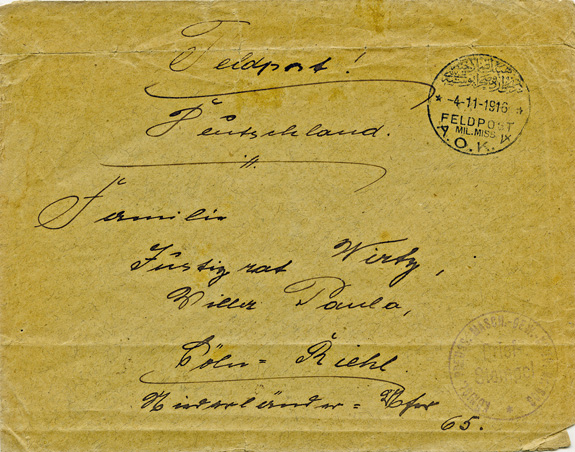 Feldpost!
-4-11-1916
FELDPOST
MIL. MISS.
A.O.K. IX
Deutschland.
Familie
Justizrat Wirtz,
Villa Paula,
Cöln=Riehl.
Niederländer=Ufer
65.